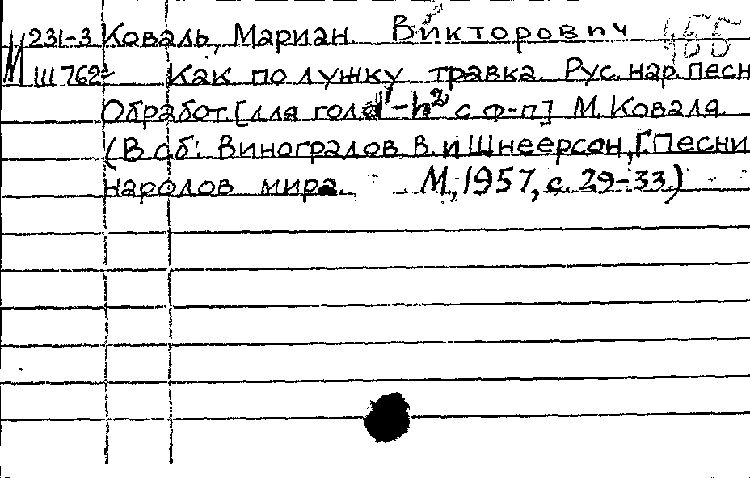 М 231-3 Коваль, Мариан Викторович 455
III 762² Как по лужку травка. Рус. нар. песн
Обработ. [для гол. d¹-h² с ф-п] М. Коваля.
(В сб: Виноградов В. и Шнеерсон, Г. Песни
народов мира. М, 1957, с. 29-33)